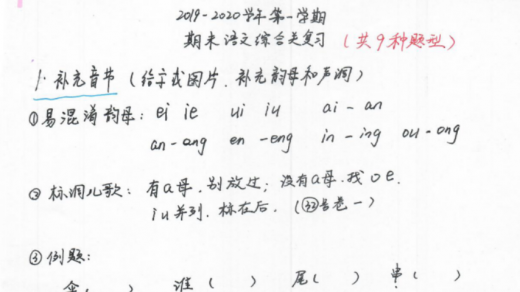 2019-2020学年第一学期
期末语文综合类复习（共9种题型）
1. 补充音节（给字或图片，补充韵母和声调）
①易混淆韵母：ei ie ui iu ai-an
an-ang en-eng in-ing ou-ong
②标调儿歌：有a母，别放过；没有a母，找oe.
iu并列，标在后。（见答卷一）
③例题：
（ ） 谁（ ） 尾（ ） 串（ ）